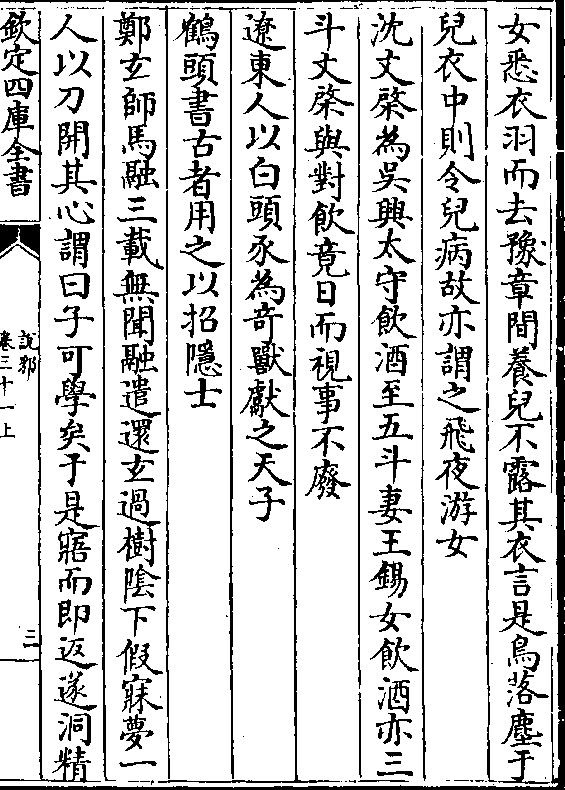 女悉衣羽而去豫章間養兒不露其衣言是鳥落塵于
兒衣中則令兒病故亦謂之飛夜游女
沈文榮為吳興太守飲酒至五斗妻王錫女飲酒亦三
斗文榮與對飲竟日而視事不廢
遼東人以白頭豕為奇獸獻之天子
鶴頭書古者用之以招隱士
鄭玄師馬融三載無聞融遣還玄過樹陰下假寐夢一
人以刀開其心謂曰子可學矣于是寤而即返遂洞精
欽定四庫全書
說郛
卷三十一上
三